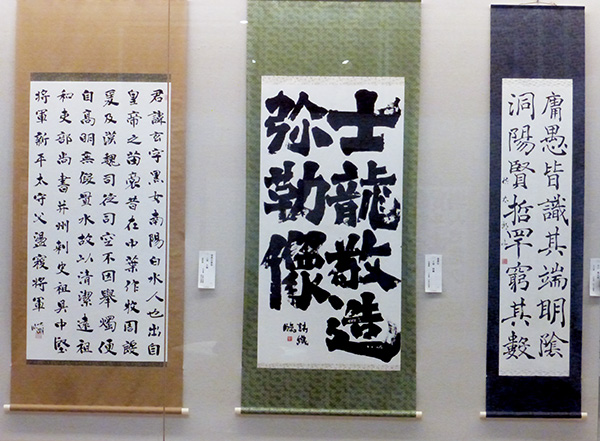 庸愚皆識其端明陰
洞陽賢哲罕窮其數
士龍敬造
弥勒像
君諱玄字黑女南陽白水人也出自
皇帝之苗裔昔在中葉作牧周殷
爰及漢魏司徒司空不因舉燭便
自高明無假置水故以清潔遠祖
和吏部尚書并州刺史祖具中堅
將軍新平太守父盪寇將軍